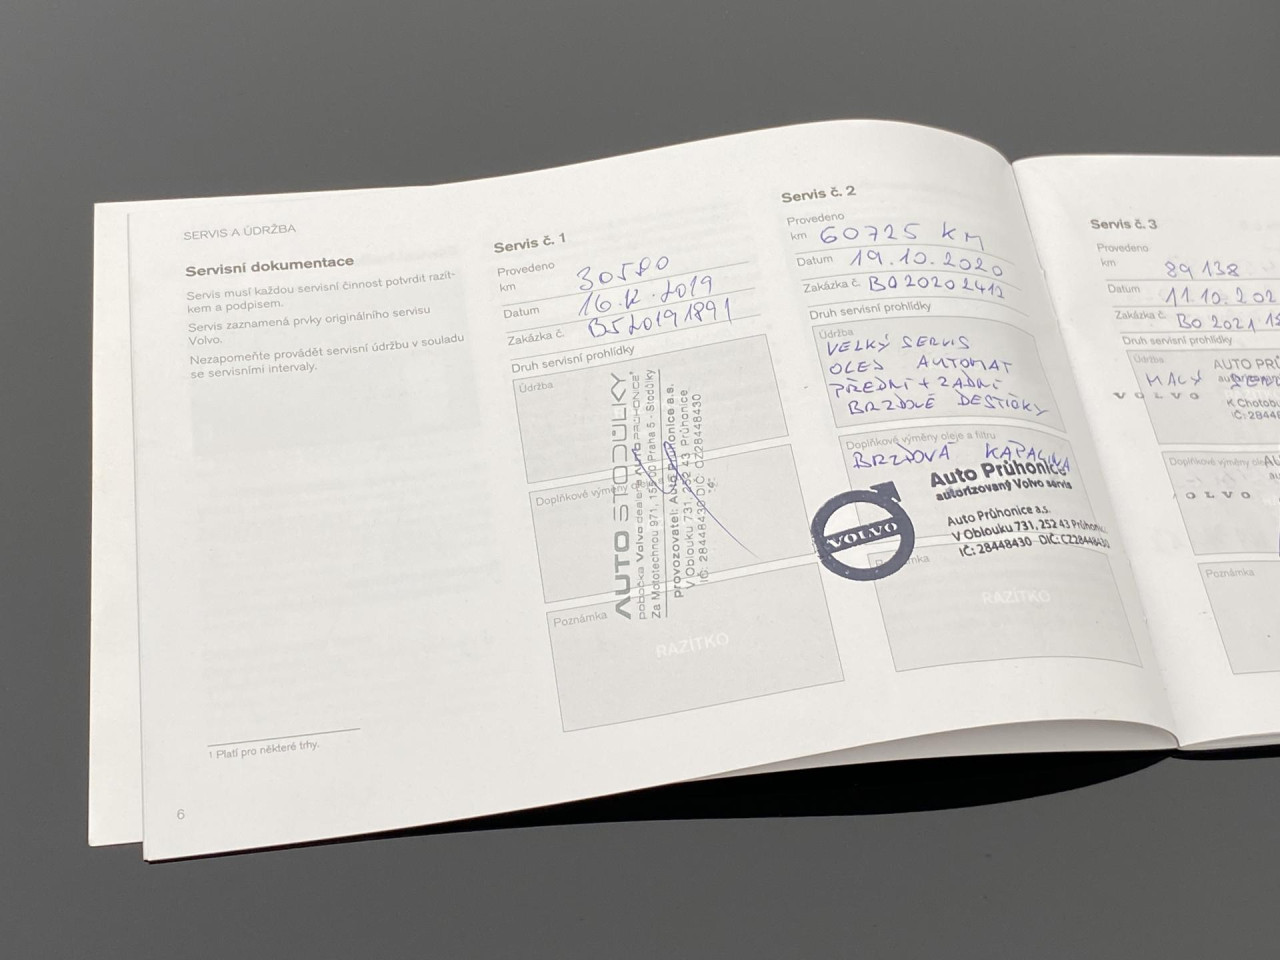 SERVIS A ÚDRŽBA
Servisní dokumentace
Servis musí každou servisní činnost potvrdit razít-
kem a podpisem.
Servis zaznamená prvky originálního servisu
Volvo.
Nezapomeňte provádět servisní údržbu v souladu
se servisními intervaly.
1 Platí pro některé trhy.
6
Servis č. 1
Provedeno
km 30580
Datum 16.12.2019
Zakázka č. B520191891
Druh servisní prohlídky
Údržba
Doplňkové výměny
Poznámka
RAZÍTKO
AUTO STODŮLKY
pobočka Volvo dealera AUTO PRŮHONICE
Za Mototechnou 971, 155 00 Praha 5 - Stodůlky
Provozovatel: Auto Průhonice a.s.
V Oblouku 731, 252 43 Průhonice
IČ: 28448430 DIČ: CZ28448430
Servis č. 2
Provedeno
km 60725 KM
Datum 19.10.2020
Zakázka č. BO20202412
Druh servisní prohlídky
Údržba
VELKÝ SERVIS
OLEJ AUTOMAT
PŘEDNÍ + ZADNÍ
BRZDOVÉ DESTIČKY
Doplňkové výměny oleje a filtru
BRZDOVÁ KAPALINA
Auto Průhonice
autorizovaný Volvo servis
VOLVO
Auto Průhonice a.s.
V Oblouku 731, 252 43 Průhonic
IČ: 28448430 DIČ: CZ28448430
RAZÍTKO
Servis č. 3
Provedeno
km 89138
Datum 11.10.202
Zakázka č. BO 2021
Druh servisní prohlídky
Údržba
MALÝ
AUTO PRŮ
VOLVO
K Chotobu
IČ: 2844
Doplňkové výměny
OLVO
Poznámka